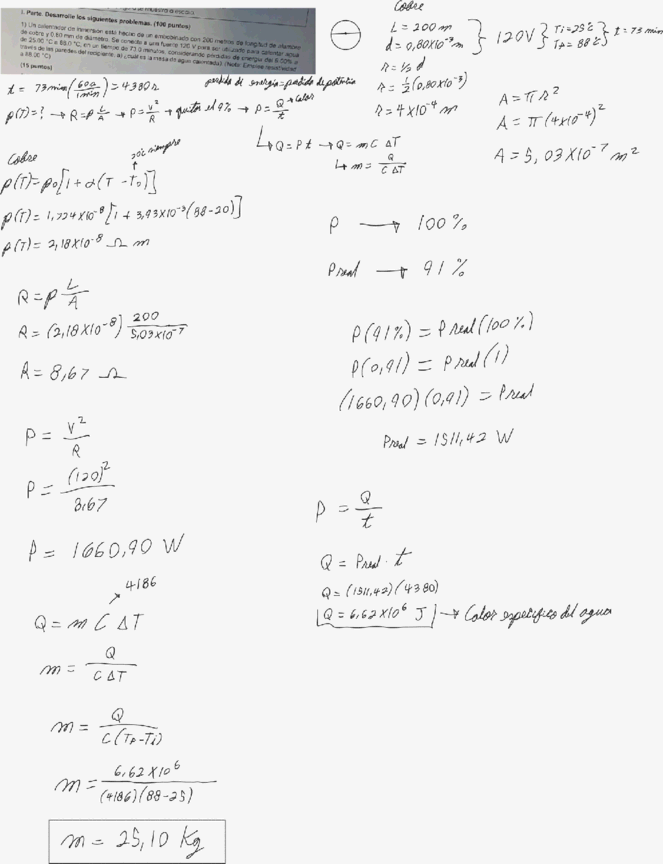 I. Parte. Desarrolle los siguientes problemas. (100 puntos)
1) Un calentador de inmersión está hecho de un embobinado con 200 metros de longitud de alambre
de cobre y 0.80 mm de diámetro. Se conecta a una fuente 120 V para ser utilizado para calentar agua
de 25.00 °C a 88.0 °C, en un tiempo de 73.0 minutos, considerando pérdidas de energía del 9.00% a
través de las paredes del recipiente. a) ¿cuál es la masa de agua calentada?
a 88.00 °C)
(15 puntos)
Cobre
L = 200 m
d = 0,80x10^-3 m
} 120V } Ti = 25°C
TF = 88°C } t = 73 min
r = 1/2 d
r = 1/2 (0,80x10^-3)
r = 4x10^-4 m
A = π r²
A = π (4x10^-4)²
A = 5,03x10^-7 m²
t = 73 min (60s/1min) = 4380 s
perdida de energia = perdida de potencia
ρ(T) = ? → R = ρ L/A → P = V²/R → quitar el 9% → P = Q/t → Calor
↳ Q = Pt → Q = m C ΔT
↳ m = Q/(C ΔT)
Cobre
20°C siempre
ρ(T) = ρ0 [1 + α (T - T0)]
ρ(T) = 1,724x10^-8 [1 + 3,93x10^-3 (88-20)]
ρ(T) = 2,18x10^-8 Ω m
R = ρ L/A
R = (2,18x10^-8) 200/(5,03x10^-7)
R = 8,67 Ω
P = V²/R
P = (120)²/8,67
P = 1660,90 W
4186
Q = m C ΔT
m = Q/(C ΔT)
m = Q/(C (TF - Ti))
m = 6,62x10^6/((4186)(88-25))
m = 25,10 Kg
P → 100%
Preal → 91%
P(91%) = Preal (100%)
P(0,91) = Preal (1)
(1660,90)(0,91) = Preal
Preal = 1511,42 W
P = Q/t
Q = Preal · t
Q = (1511,42)(4380)
Q = 6,62x10^6 J → Calor especifico del agua